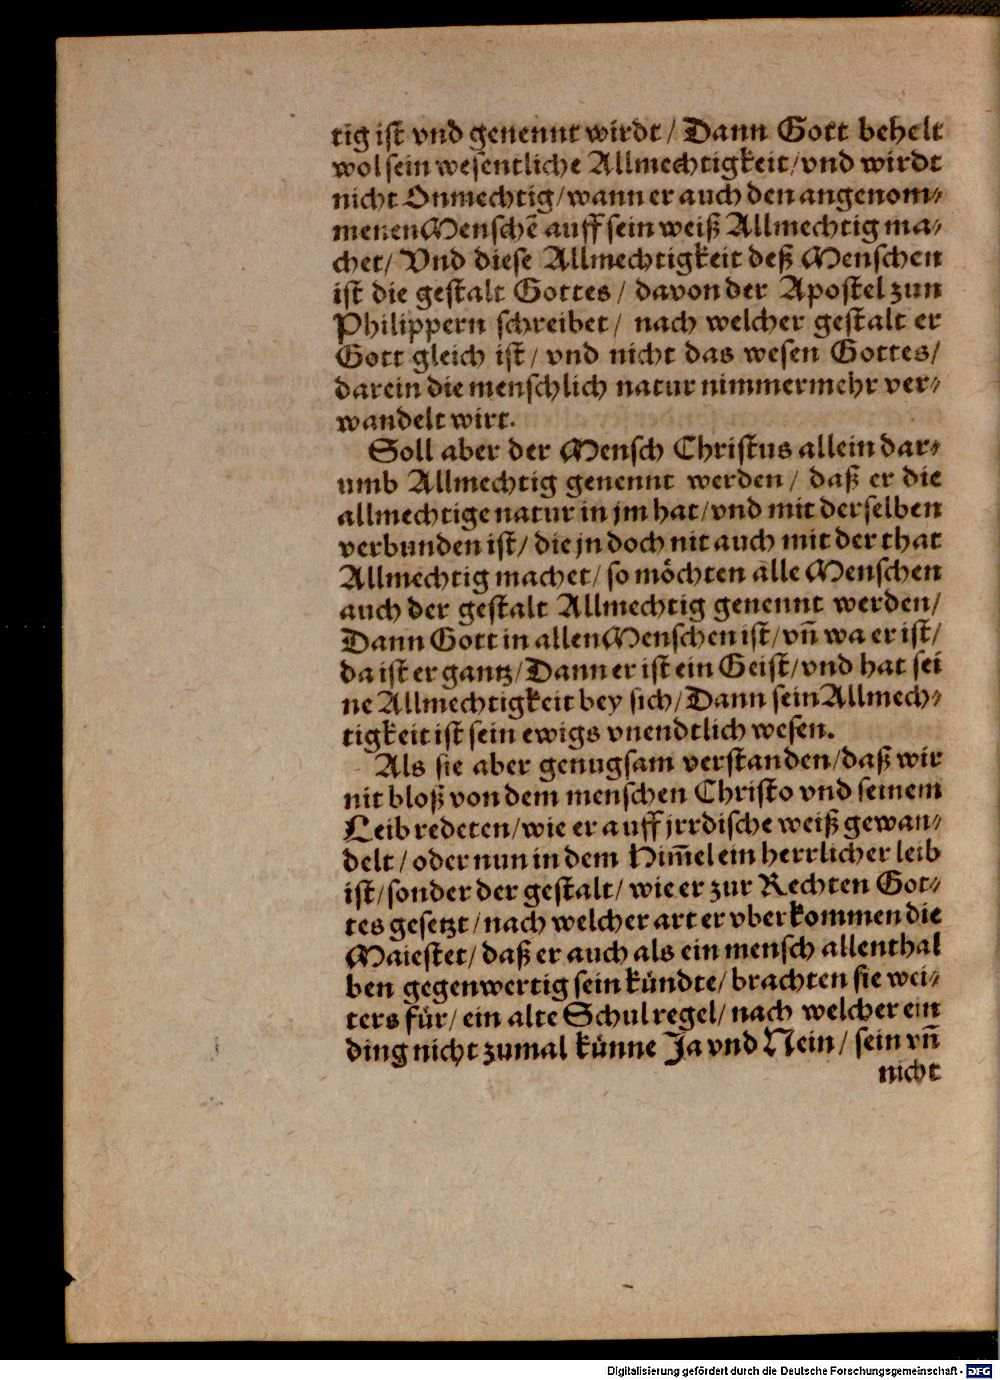 tig ist vnd genennt wirdt / Dann Gott behelt
wol sein wesentliche Allmechtigkeit / vnd wirdt
nicht Onmechtig / wann er auch den angenom⸗
menen Menschẽ auff sein weiß Allmechtig ma⸗
chet / Vnd diese Allmechtigkeit deß Menschen
ist die gestalt Gottes / davon der Apostel zun
Philippern schreibet / nach welcher gestalt er
Gott gleich ist / vnd nicht das wesen Gottes /
darein die menschlich natur nimmermehr ver⸗
wandelt wirt.
Soll aber der Mensch Christus allein dar⸗
umb Allmechtig genennt werden / daß er die
allmechtige natur in jm hat / vnd mit derselben
verbunden ist / die jn doch nit auch mit der that
Allmechtig machet / so möchten alle Menschen
auch der gestalt Allmechtig genennt werden /
Dann Gott in allen Menschen ist / vñ wa er ist /
da ist er gantz / Dann er ist ein Geist / vnd hat sei
ne Allmechtigkeit bey sich / Dann sein Allmech⸗
tigkeit ist sein ewigs vnendtlich wesen.
Als sie aber genugsam verstanden / daß wir
nit bloß von dem menschen Christo vnd seinem
Leib redeten / wie er auff jrrdische weiß gewan⸗
delt / oder nun in dem Him̃el ein herrlicher leib
ist / sonder der gestalt / wie er zur Rechten Got⸗
tes gesetzt / nach welcher art er vberkommen die
Maiestet / daß er auch als ein mensch allenthal
ben gegenwertig sein kůndte / brachten sie wei⸗
ters fůr / ein alte Schul regel / nach welcher ein
ding nicht zumal kůnne Ja vnd Nein / sein vñ
nicht
Digitalisierung gefördert durch die Deutsche Forschungsgemeinschaft - DFG